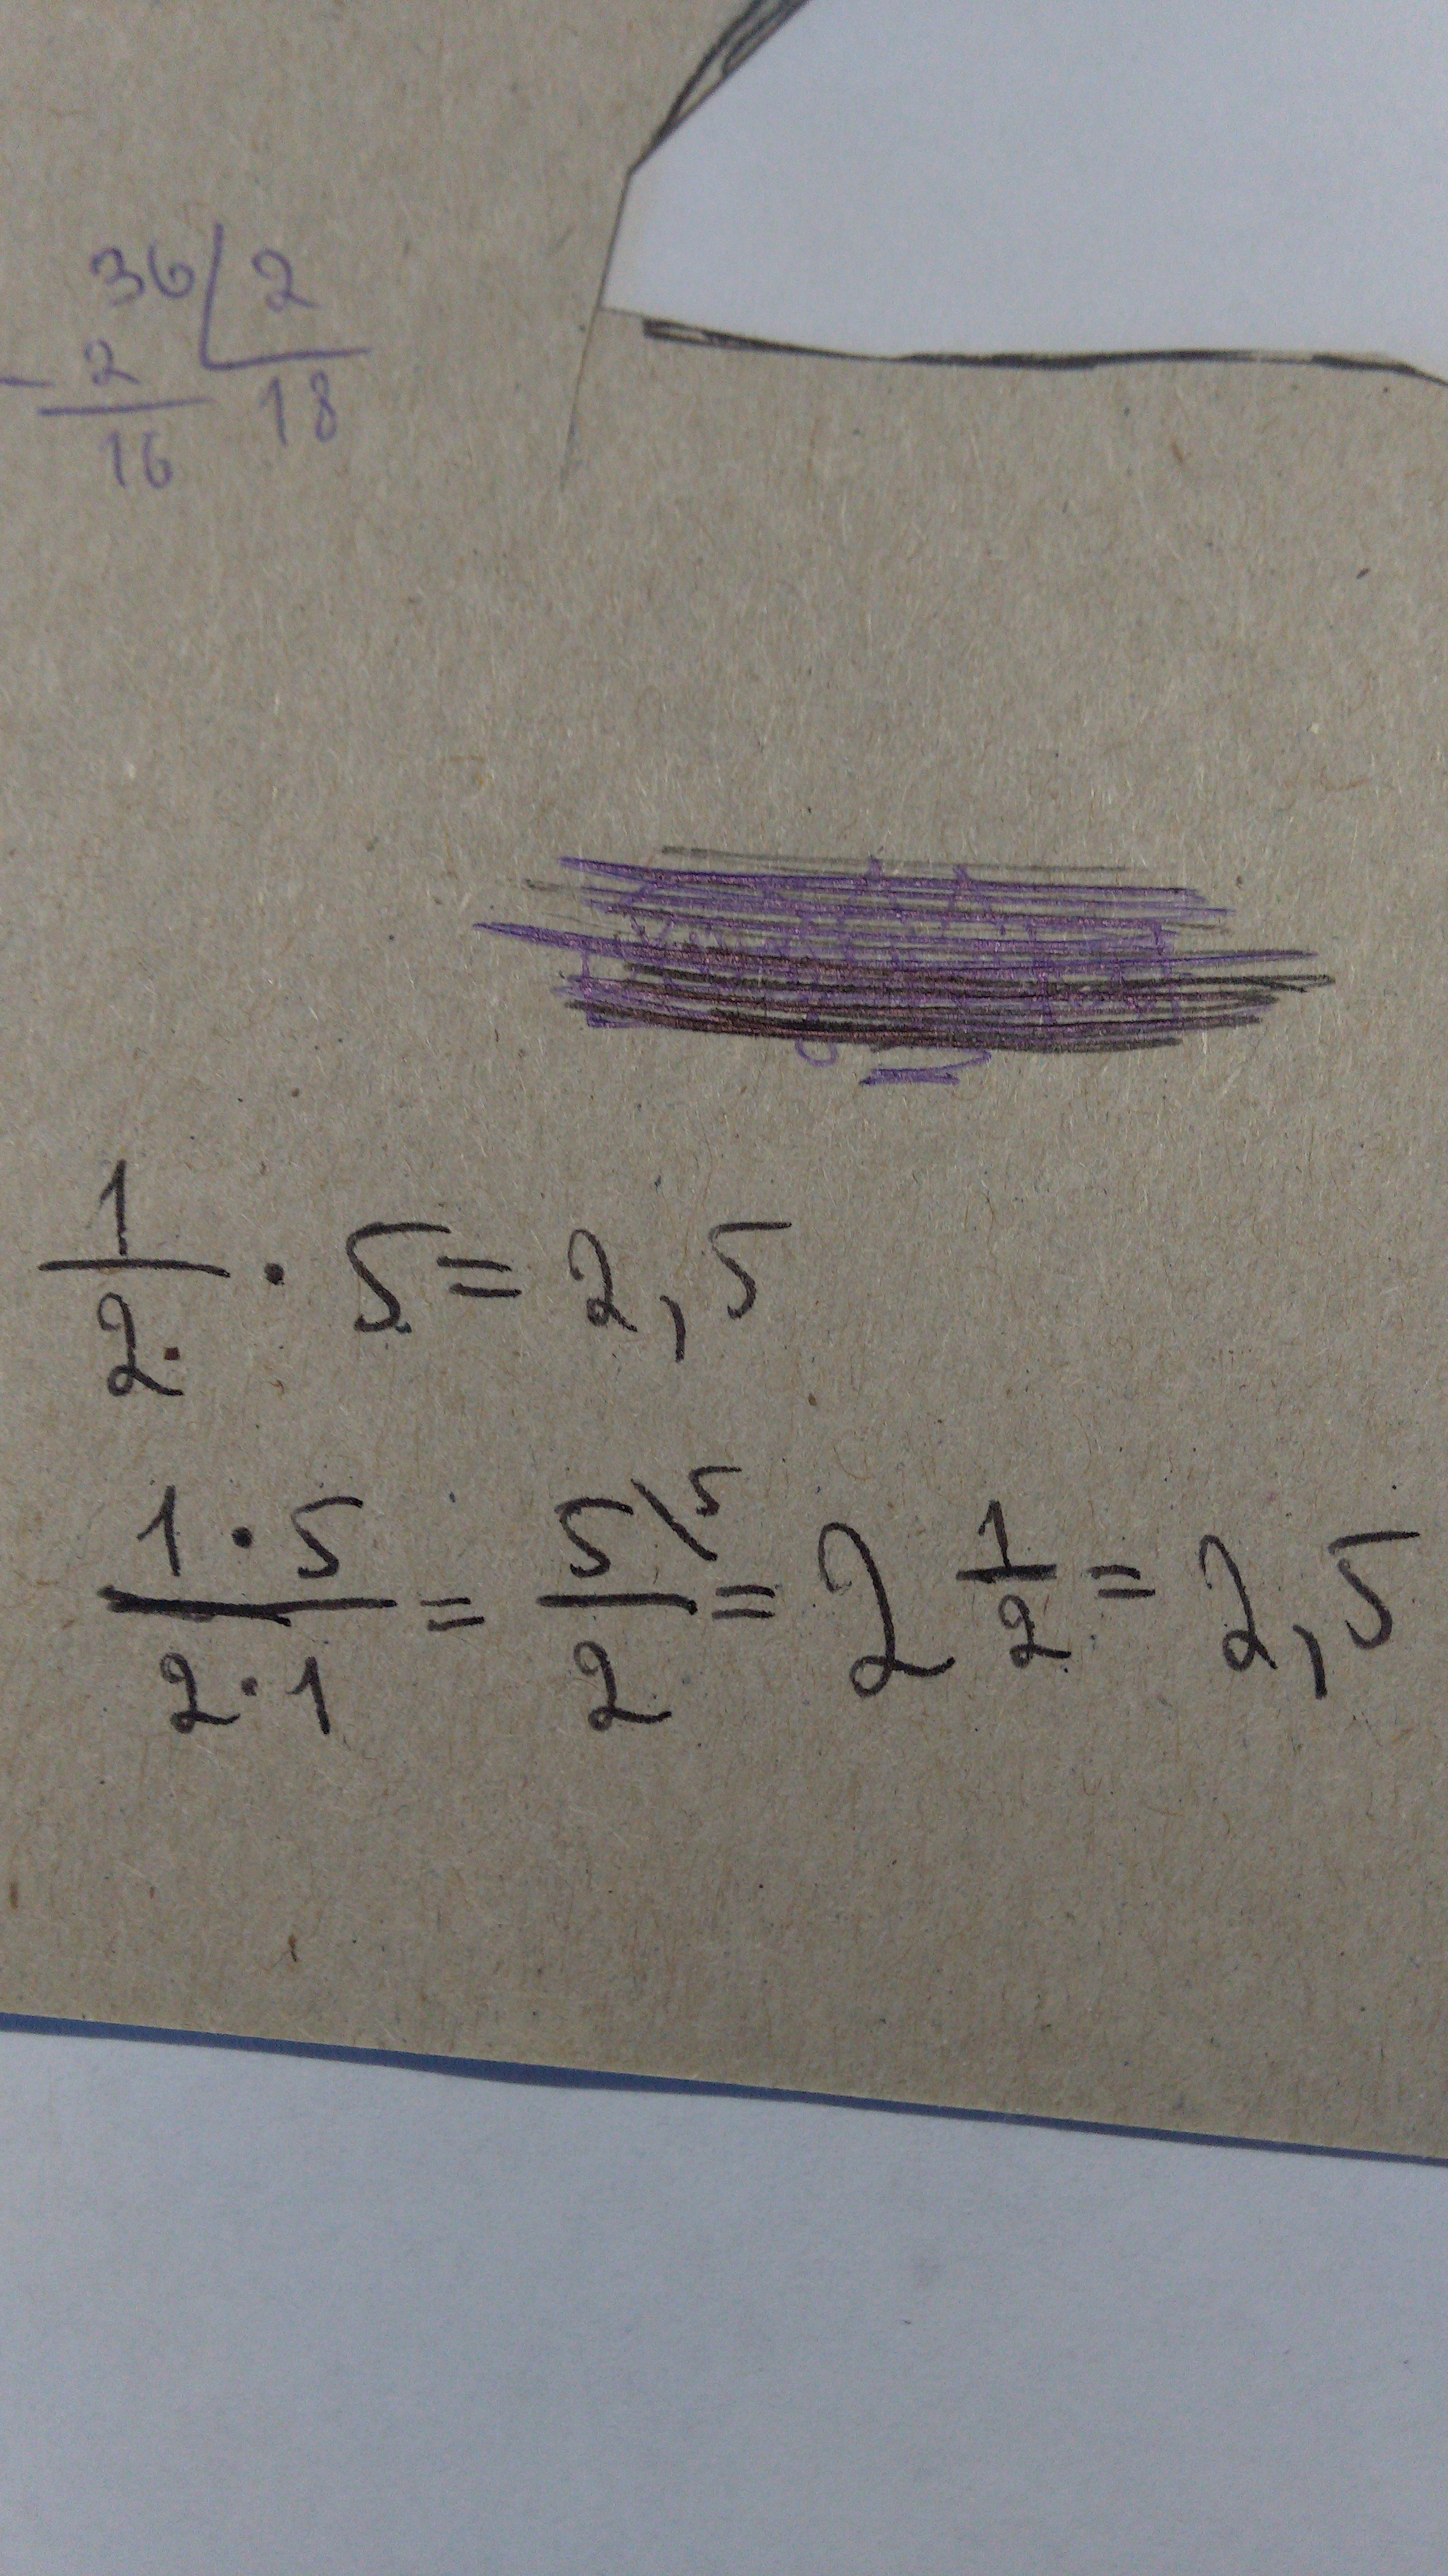 36 2
- 2 18
16
1/2 · 5 = 2,5
1 · 5/2 · 1 = 5\5/2 = 2 1/2 = 2,5